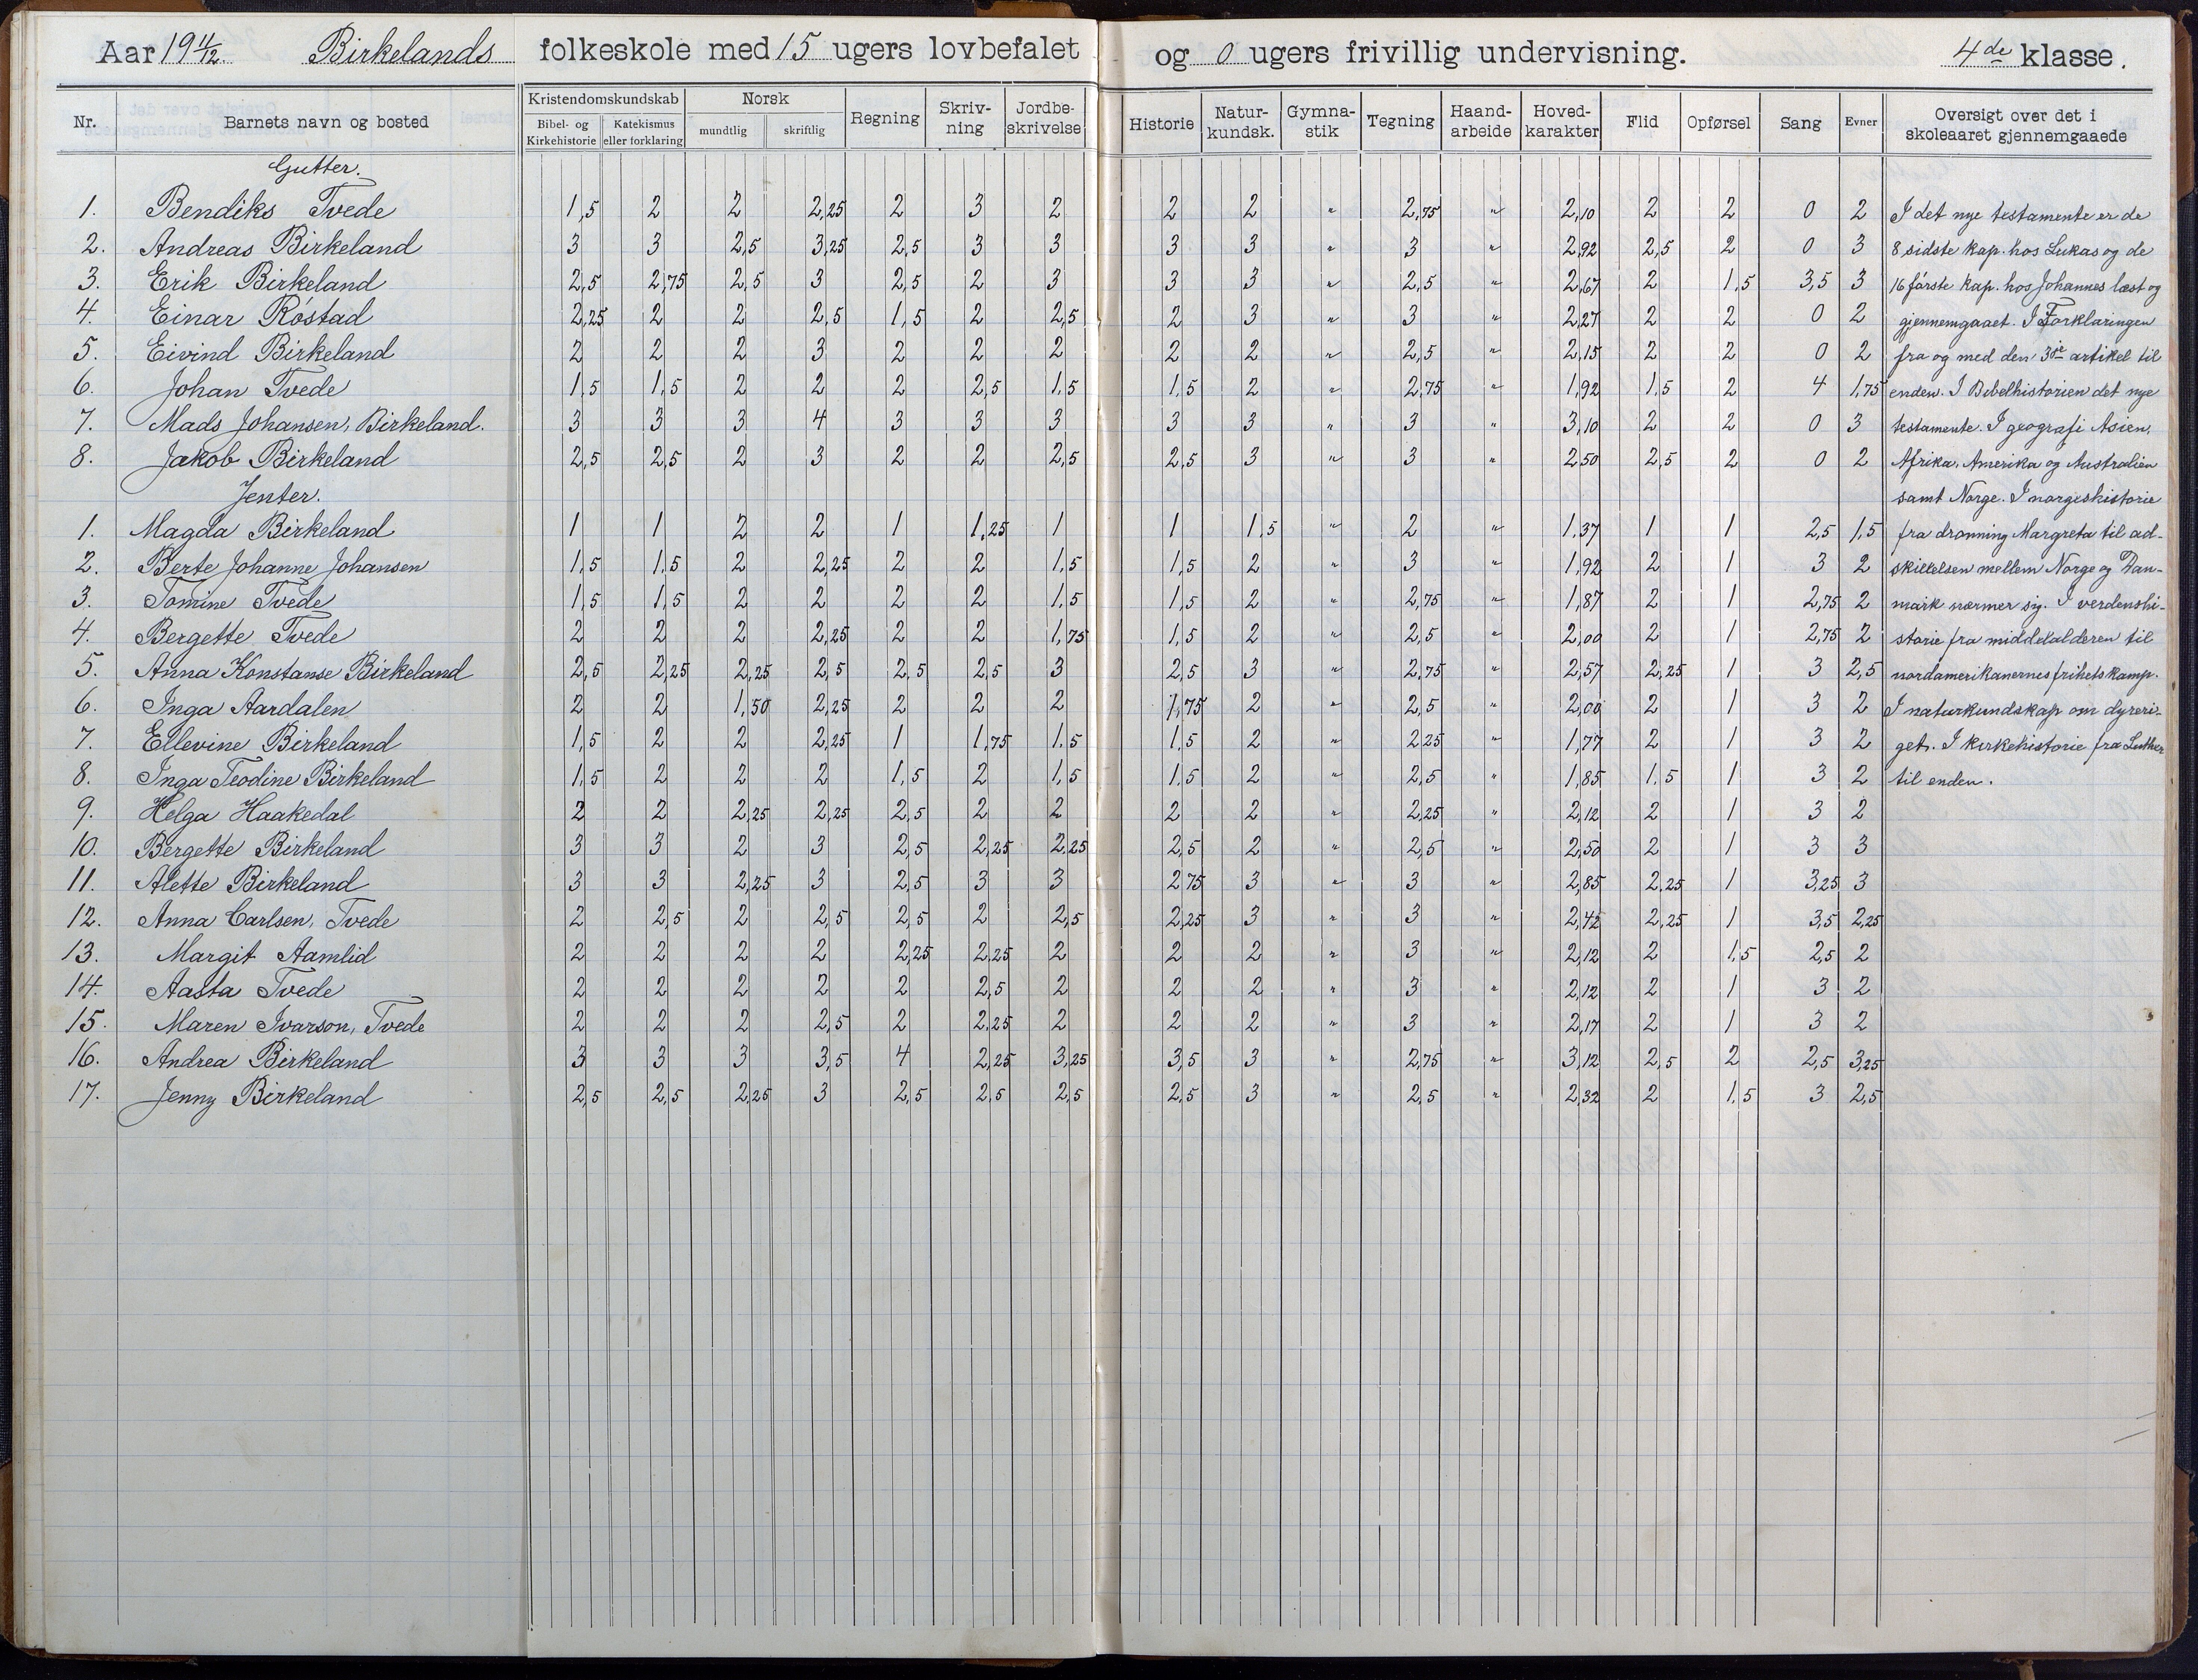 Aar 19 11/12. Birkelands folkeskole med 15 ugers lovbefalet og 0 ugers frivillig undervisning. 4de klasse.
Nr. Barnets navn og bosted Kristendomskundskab Bibel- og Kirkehistorie Katekismus eller forklaring Norsk mundtlig skriftlig Regning Skriv-ning Jordbe-skrivelse Historie Natur-kundsk. Gymna-stik Tegning Haand-arbeide Hoved-karakter Flid Opførsel Sang Evner Oversigt over det i skoleaaret gjennemgaaede
Gutter.
1. Bendiks Tvede 1,5 2 2 2,25 2 3 2 2 2 " 2,75 " 2,10 2 2 0 2 I det nye testamente er de
2. Andreas Birkeland 3 3 2,5 3,25 2,5 3 3 3 3 " 3 " 2,92 2,5 2 0 3 8 sidste kap. hos Lukas og de
3. Erik Birkeland 2,5 2,75 2,5 3 2,5 2 3 3 3 " 2,5 " 2,67 2 1,5 3,5 3 16 første kap. hos Johannes læst og
4. Einar Røstad 2,25 2 2 2,5 1,5 2 2,5 2 3 " 3 " 2,27 2 2 0 2 gjennemgaaet. I Forklaringen
5. Eivind Birkeland 2 2 2 3 2 2 2 2 2 " 2,5 " 2,15 2 2 0 2 fra og med den 3je artikel til
6. Johan Tvede 1,5 1,5 2 2 2 2,5 1,5 1,5 2 " 2,75 " 1,92 1,5 2 4 1,75 enden. I Bibelhistorien det nye
7. Mads Johansen, Birkeland. 3 3 3 4 3 3 3 3 3 " 3 " 3,10 2 2 0 3 testamente. I geografi Asien,
8. Jakob Birkeland 2,5 2,5 2 3 2 2 2,5 2,5 3 " 3 " 2,50 2,5 2 0 2 Afrika, Amerika og Australien
Jenter. samt Norge. I norgeshistorie
1. Magda Birkeland 1 1 2 2 1 1,25 1 1 1,5 " 2 " 1,37 1 1 2,5 1,5 fra dronning Margreta til ad-
2. Berte Johanne Johansen 1,5 1,5 2 2,25 2 2 1,5 1,5 2 " 3 " 1,92 2 1 3 2 skillelsen mellem Norge og Dan-
3. Tomine Tvede 1,5 1,5 2 2 2 2 1,5 1,5 2 " 2,75 " 1,87 2 1 2,75 2 mark nærmer sig. I verdenshi-
4. Bergette Tvede 2 2 2 2,25 2 2 1,75 1,5 2 " 2,5 " 2,00 2 1 2,75 2 storie fra middelalderen til
5. Anna Konstanse Birkeland 2,5 2,25 2,25 2,5 2,5 2,5 3 2,5 3 " 2,75 " 2,57 2,25 1 3 2,5 nordamerikanernes frihetskamp.
6. Inga Aardalen 2 2 1,50 2,25 2 2 2 1,75 2 " 2,5 " 2,00 2 1 3 2 I naturkundskap om dyreri-
7. Ellevine Birkeland 1,5 2 2 2,25 1 1,75 1,5 1,5 2 " 2,25 " 1,77 2 1 3 2 get. I kirkehistorie fra Luther
8. Inga Teodine Birkeland 1,5 2 2 2 1,5 2 1,5 1,5 2 " 2,5 " 1,85 1,5 1 3 2 til enden.
9. Helga Haakedal 2 2 2,25 2,25 2,5 2 2 2 2 " 2,25 " 2,12 2 1 3 2
10. Bergette Birkeland 3 3 2 3 2,5 2,25 2,25 2,5 2 " 2,5 " 2,50 2 1 3 3
11. Alette Birkeland 3 3 2,25 3 2,5 3 3 2,75 3 " 3 " 2,85 2,25 1 3,25 3
12. Anna Carlsen, Tvede 2 2,5 2 2,5 2,5 2 2,5 2,25 3 " 3 " 2,42 2,25 1 3,5 2,25
13. Margit Aamlid 2 2 2 2 2,25 2,25 2 2 2 " 3 " 2,12 2 1,5 2,5 2
14. Aasta Tvede 2 2 2 2 2 2,5 2 2 2 " 3 " 2,12 2 1 3 2
15. Maren Ivarson, Tvede 2 2 2 2,5 2 2,25 2 2 2 " 3 " 2,17 2 1 3 2
16. Andrea Birkeland 3 3 3 3,5 4 2,25 3,25 3,5 3 " 2,75 " 3,12 2,5 2 2,5 3,25
17. Jenny Birkeland 2,5 2,5 2,25 3 2,5 2,5 2,5 2,5 3 " 2,5 " 2,32 2 1,5 3 2,5